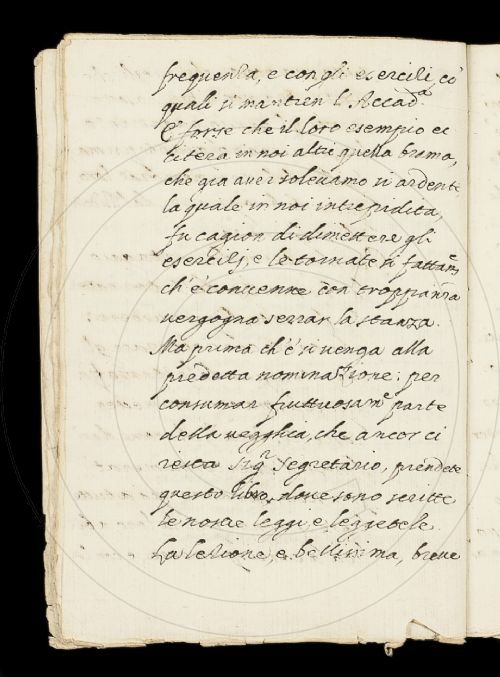 frequenza, e con gli esercilj, co'
quali si mantien l'Accad.ª
E forse che il loro esempio ec
citerà in noi altri quella brama,
che già aver solevamo sì ardente
la quale in noi intrepidita,
fu cagion di dimettere gli
esercilj, e le tornate sì fattam.e
ch'e' convenne con troppa nra
vergogna serrar la stanza.
Ma prima ch'e' si venga alla
predetta nominazione: per
consumar fruttuosam.e parte
della vegghia, che ancor ci
resta Sig.r Segretario, prendete
questo libro, dove sono scritte
le nostre leggi, e leggetele.
La lezione, e bellissima, breve